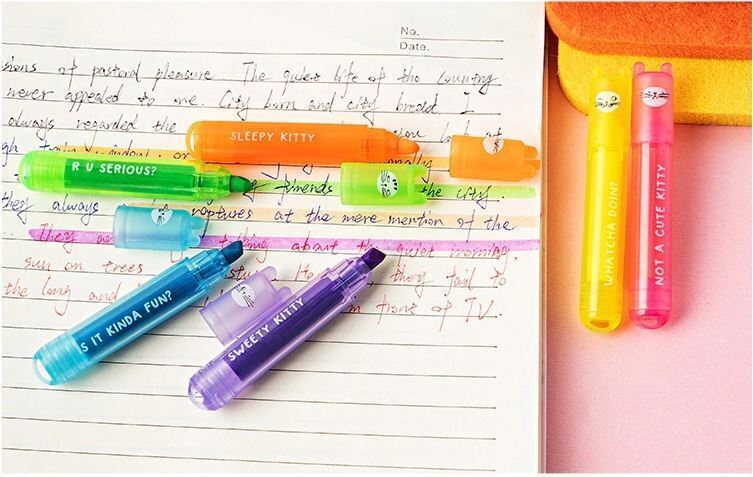 No.
Date.
sions of pastoral pleasure. The quiet life of the country
never appealed to me. City born and city bread. I
always regarded the
SLEEPY KITTY
R U SERIOUS?
friends the city
they always raptures at the mere mention of the
They about the quiet morning,
sun on trees they fail to
the long and front of TV.
S IT KINDA FUN?
SWEETY KITTY
WHATCHA DOIN?
NOT A CUTE KITTY